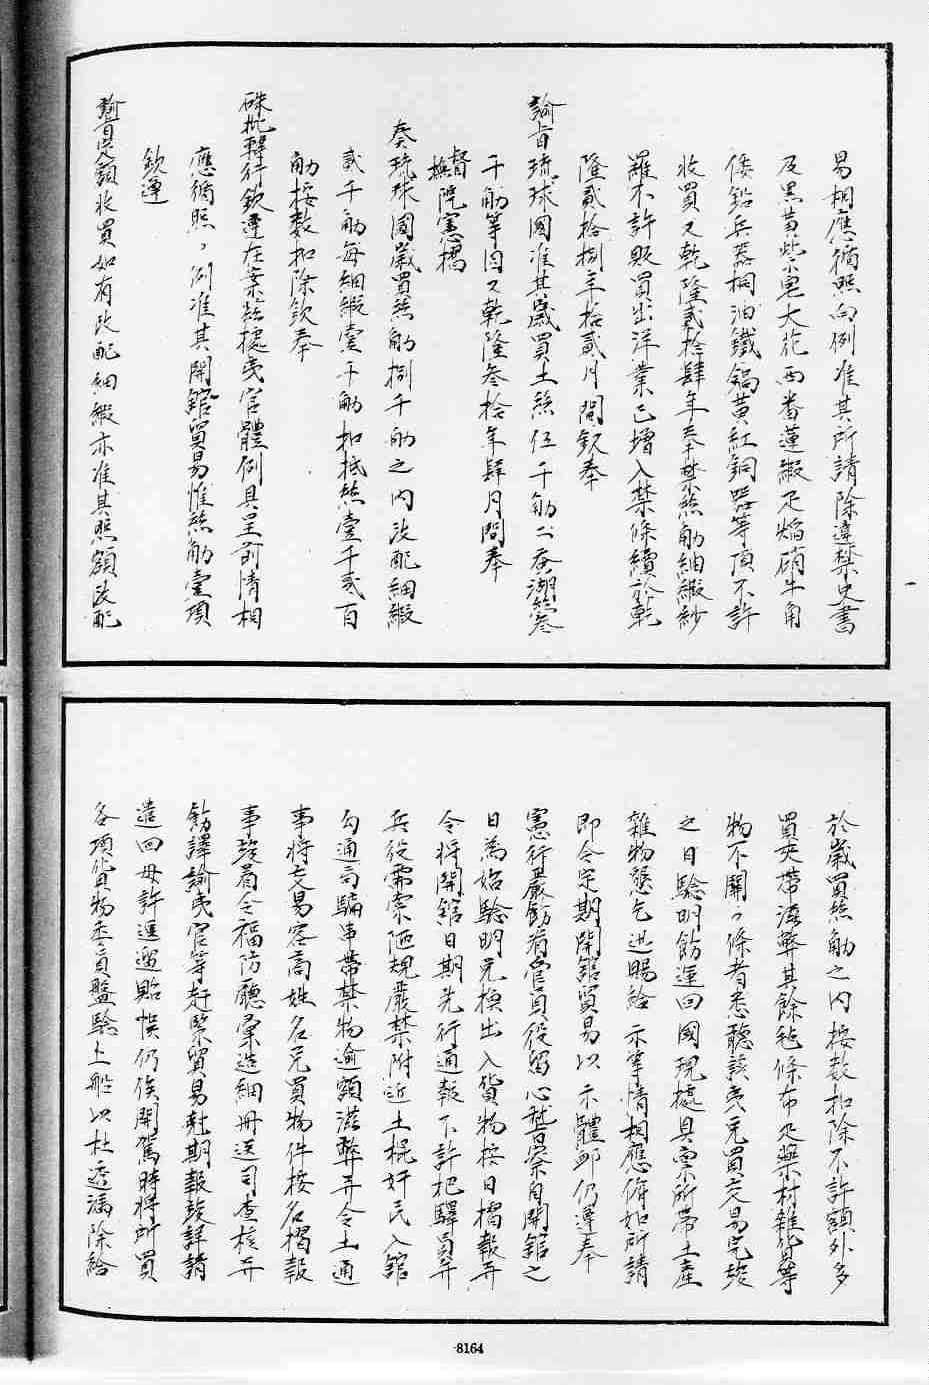 易相應循照向例准其所請除違禁史書
及黑黃紫皂大花西番蓮緞疋焰硝牛角
倭鉛兵器桐油鐵鍋黃紅銅器等項不許
收買又乾隆貳拾肆年奉禁絲觔紬緞紗
羅不許販買出洋業已增入禁條續於乾
隆貳拾捌年拾貳月間欽奉
諭旨琉球國准其歲買土絲伍千觔二蚕湖絲叁
千觔等因又乾隆叁拾年肆月間奉
督撫院憲摺
奏琉球國歲買絲觔捌千觔之內汝配紬緞
貳千觔每紬緞壹千觔扣抵絲壹千貳百
觔按數扣除欽奉
硃批轉行欽遵在案茲據夷官體例具呈前情相
應循照〻例准其開館貿易惟絲觔壹項
欽遵
諭旨定額收買如有改配紬緞亦准其照額汝配
於歲買絲觔之內按數扣除不許額外多
買夾帶滋弊其餘毡條布疋藥材雜貨等
物不關〻條者悉聽該夷兌買交易完竣
之日驗明飭運回國現據具稟所帶土產
雜物懇乞迅賜給示等情相應俯如所請
即令定期開舘貿易以示體卹仍遵奉
憲行嚴飭看管員役留心稽察自開舘之
日為始驗明兌換出入貨物按日摺報并
令將開舘日期先行通報不許把驛員弁
兵役需索陋規嚴禁附近土棍奸民入舘
勾通哥騙串帶禁物逾額滋弊并令土通
事將交易客商姓名兌買物件按名摺報
事竣着令福防廳彙造細冊送司查核并
飭譯諭夷官等赶緊貿易尅期報竣詳請
遣回毋許遲逥貽悞仍俟開駕時將所買
各項貨物委員盤驗上船以杜透漏除給
8164